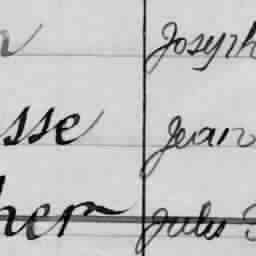 Joseph
sse Jean
her Jules